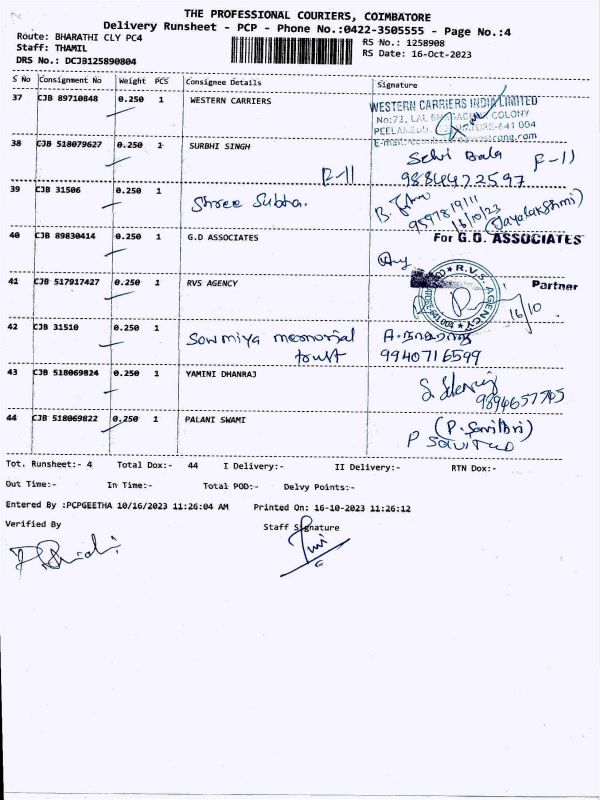 THE PROFESSIONAL COURIERS, COIMBATORE
Delivery Runsheet - PCP - Phone No.:0422-3505555 - Page No.:4
Route: BHARATHI CLY PC4
RS No.: 1258908
Staff: THAMIL
RS Date: 16-Oct-2023
DRS No.: DCJB125890804
S No Consignment No Weight PCS Consignee Details Signature
37 CJB 89710848 0.250 1 WESTERN CARRIERS
WESTERN CARRIERS INDIA LIMITED
No:72, LAL COLONY
641 004
38 CJB 518079627 0.250 1 SURBHI SINGH
Selvi Bala F-11
F-11 9884472597
39 CJB 31506 0.250 1 Shree Subha.
9597819111
16/10/23
(Jayalakshmi)
40 CJB 89830414 0.250 1 G.D ASSOCIATES
For G.D. ASSOCIATES
Partner
41 CJB 517917427 0.250 1 RVS AGENCY
R.V.S. AGENCY
16/10
42 CJB 31510 0.250 1 Sowmiya memorial
trust 9940716599
43 CJB 518069824 0.250 1 YAMINI DHANRAJ
9894657745
44 CJB 518069822 0.250 1 PALANI SWAMI
(P. Savithri)
Tot. Runsheet:- 4 Total Dox:- 44 I Delivery:- II Delivery:- RTN Dox:-
Out Time:- In Time:- Total POD:- Delvy Points:-
Entered By :PCPGEETHA 10/16/2023 11:26:04 AM Printed On: 16-10-2023 11:26:12
Verified By Staff Signature